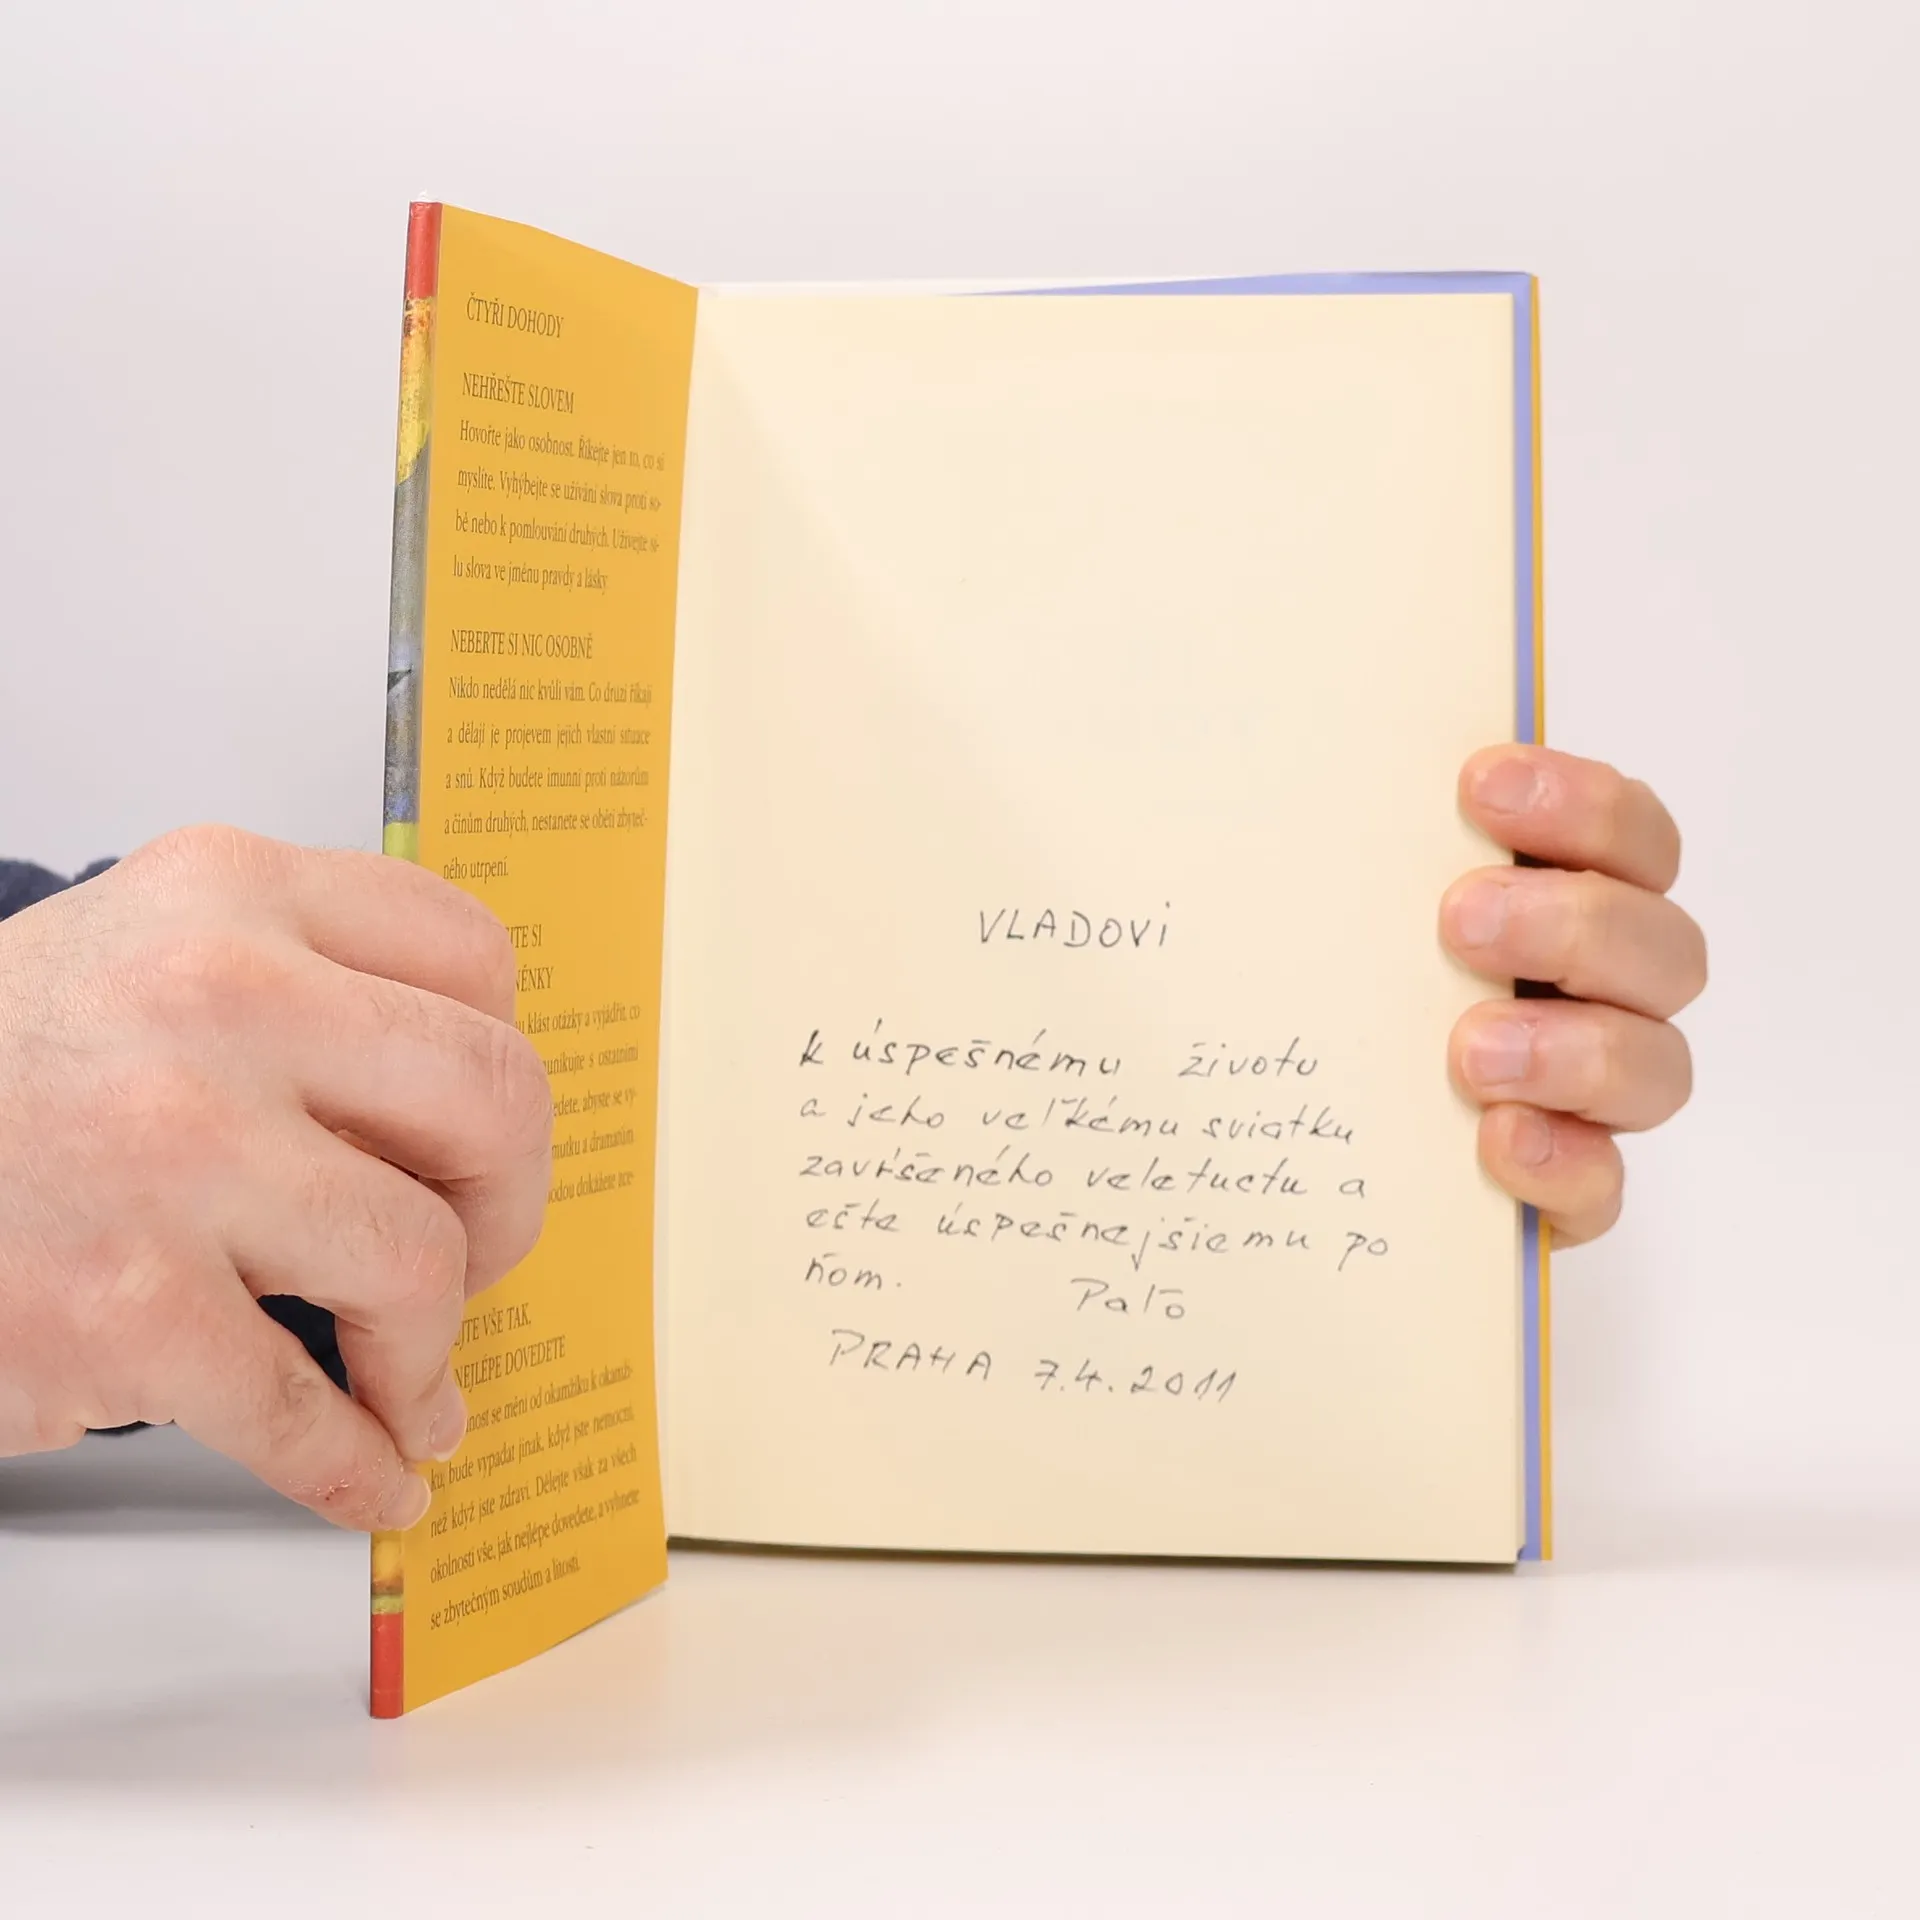 ČTYŘI DOHODY
NEHŘEŠTE SLOVEM
Hovořte jako osobnost. Říkejte jen to, co si
myslíte. Vyhýbejte se užívání slova proti so-
bě nebo k pomlouvání druhých. Užívejte sí-
lu slova ve jménu pravdy a lásky.
NEBERTE SI NIC OSOBNĚ
Nikdo nedělá nic kvůli vám. Co druzí říkají
a dělají je projevem jejich vlastní situace
a snů. Když budete imunní proti názorům
a činům druhých, nestanete se obětí zbyteč-
ného utrpení.
SI
klást otázky a vyjádřit, co
s ostatními
abyste se vy-
a dramatům
dokážete
VŠE TAK,
NEJLÉPE DOVEDETE
se mění od okamžiku k okamži-
ku, bude vypadat jinak, když jste nemocní,
než když jste zdraví. Dělejte však za všech
okolností vše, jak nejlépe dovedete, a vyhnete
se zbytečným soudům a lítosti.
VLADOVI
k úspešnému životu
a jeho veľkému sviatku
završeného veletuctu a
ešte úspešnejšiemu po
ňom. Paľo
PRAHA 7.4.2011